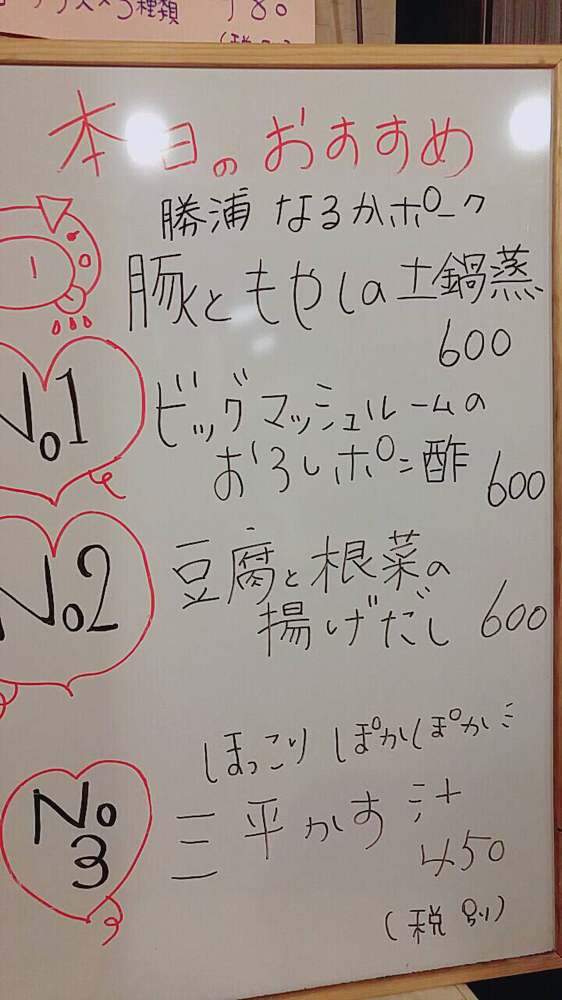 3種類
780
本日のおすすめ
勝浦 なるかポーク
豚ともやしの土鍋蒸
600
No1
ビッグマッシュルームの
おろしポン酢 600
No2
豆腐と根菜の
揚げだし 600
ほっこり ぽかぽか
No3
三平かす汁
450
(税別)